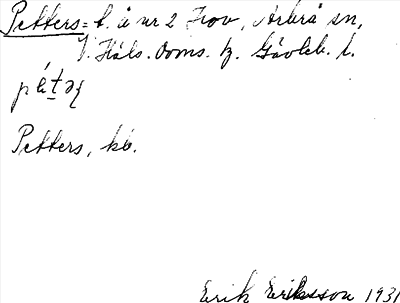 Petters = t. å nr 2 Hov, Arbrå sn,
V. Häls. doms. tz. Gävleb. l.
Petters, kb.
Erik Eriksson 1931